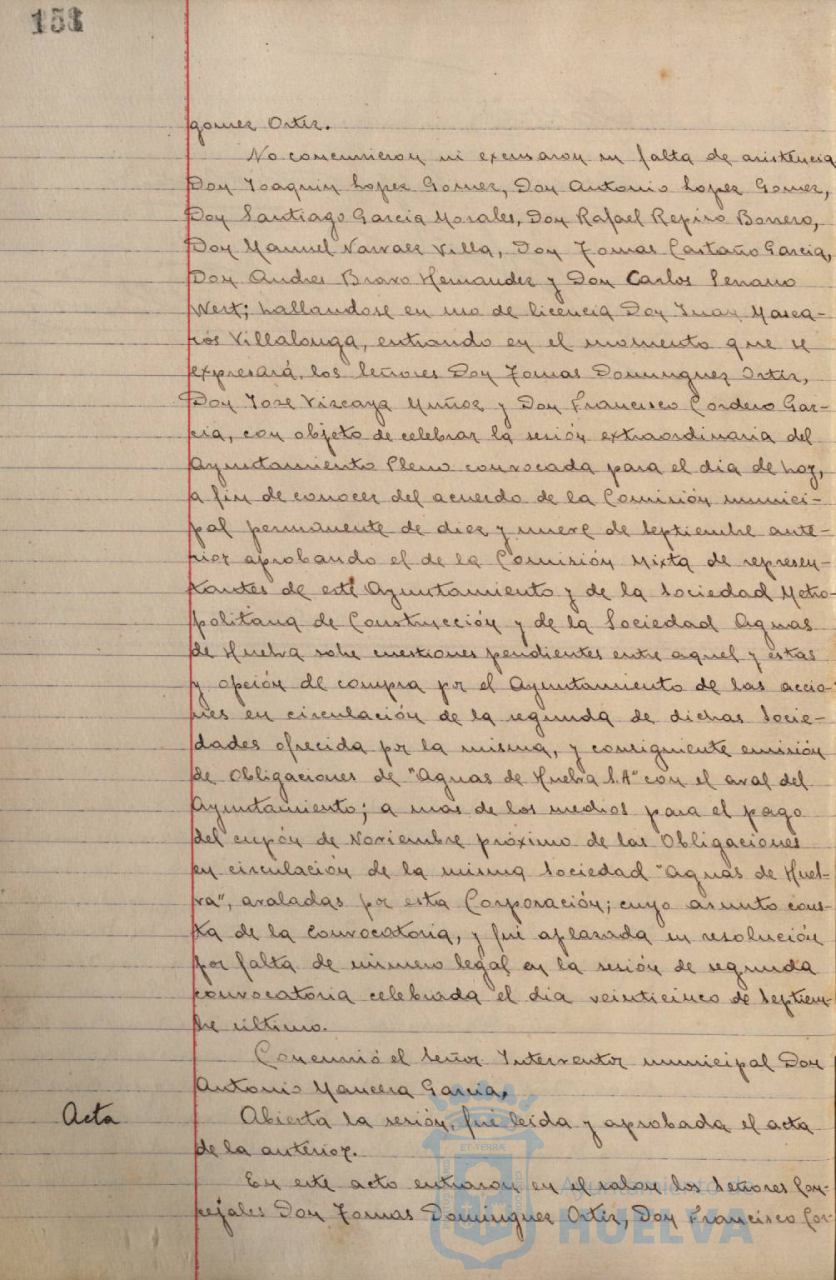 151
gomez Ortiz.
No concurrieron ni excusaron su falta de asistencia
Don Joaquin Lopez Gomez, Don Antonio Lopez Gomez,
Don Santiago Garcia Morales, Don Rafael Repiso Borrero,
Don Manuel Narvaez Villa, Don Tomas Castaño Garcia,
Don Andres Bravo Hernandez y Don Carlos Serrano
Wert; hallandose en uso de licencia Don Juan Masca-
rós Villalonga, entrando en el momento que se
expresará, los Señores Don Tomas Dominguez Ortiz,
Don José Vizcaya Muñoz y Don Francisco Cordero Gar-
cia, con objeto de celebrar la sesión extraordinaria del
Ayuntamiento Pleno convocada para el dia de hoy,
a fin de conocer del acuerdo de la Comisión munici-
pal permanente de diez y nueve de Septiembre ante-
rior aprobando el de la Comisión Mixta de represen-
tantes de este Ayuntamiento y de la Sociedad Metro-
politana de Construcción y de la Sociedad Aguas
de Huelva sobre cuestiones pendientes entre aquel y estas
y opción de compra por el Ayuntamiento de las accio-
nes en circulación de la segunda de dichas Socie-
dades ofrecida por la misma, y consiguiente emisión
de Obligaciones de "Aguas de Huelva S.A" con el aval del
Ayuntamiento; a mas de los medios para el pago
del cupón de Noviembre próximo de las Obligaciones
en circulación de la misma Sociedad "Aguas de Huel-
va", avaladas por esta Corporación; cuyo asunto cons-
ta de la convocatoria, y fué aplazada su resolución
por falta de número legal en la sesión de segunda
convocatoria celebrada el dia veinticinco de Septiem-
bre último.
Concurrió el Señor Interventor municipal Don
Antonio Mancera Garcia.
Acta
Abierta la sesión, fué leida y aprobada el acta
de la anterior.
En este acto entraron en el salon los Señores Con-
cejales Don Tomas Dominguez Ortiz, Don Francisco Cor-
Ayuntamiento de
HUELVA